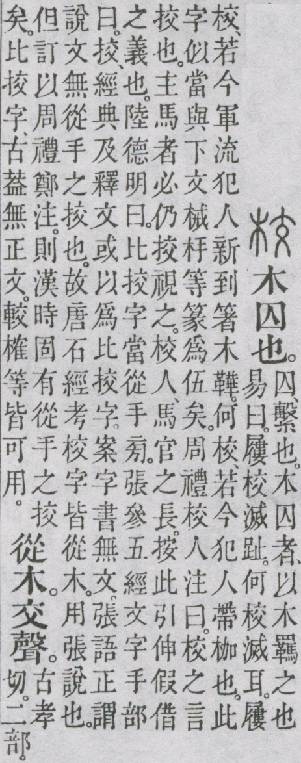 校
木囚也。
囚、繫也。木囚者、以木羈之也
易曰。屨校滅趾。何校滅耳。屨
校、若今軍流犯人新到箸木鞾。何校、若今犯人帶枷也。此
字似當與下文械杽等篆爲伍矣。周禮校人注曰。校之言
挍也。主馬者必仍挍視之。校人、馬官之長。按此引伸假借
之義也。陸德明曰。比挍字當從手旁。張參五經文字手部
曰。挍、經典及釋文或以爲比挍字。案字書無文。張語正謂
說文無從手之挍也。故唐石經考校字皆從木。用張說也。
但訂以周禮鄭注。則漢時固有從手之挍
矣。比挍字古葢無正文。較榷等皆可用。
從木。交聲。
古孝
切。二部。